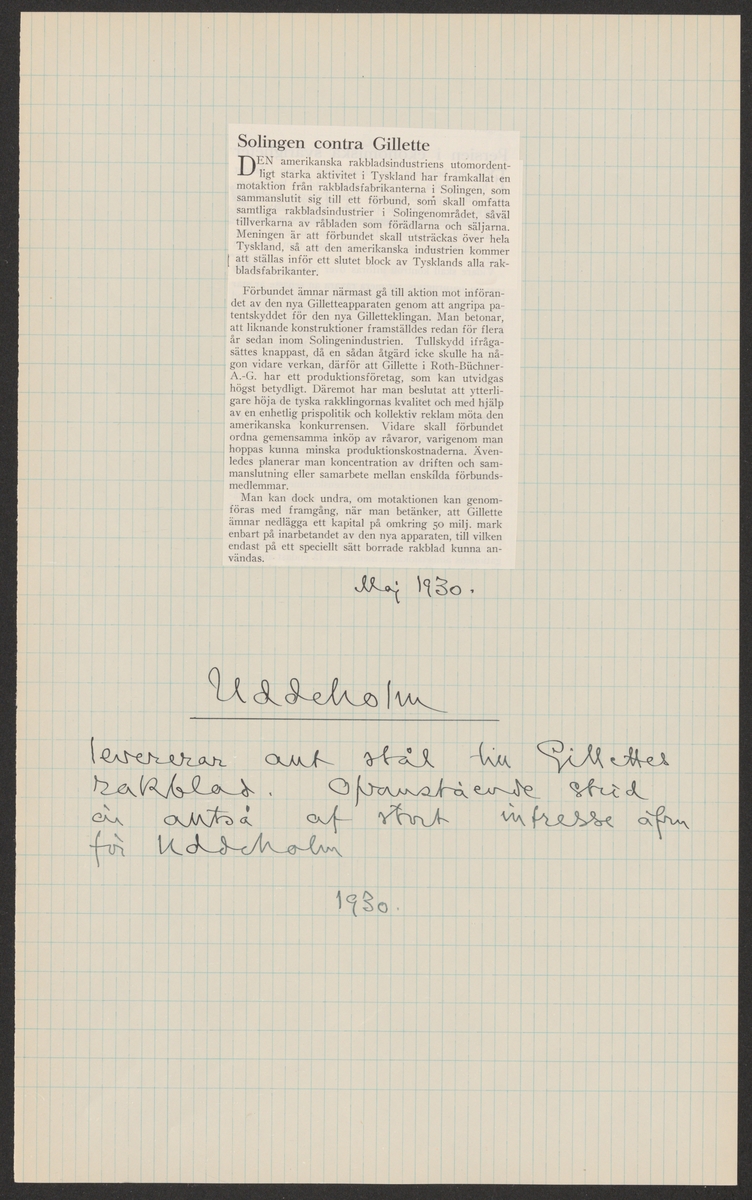 Solingen contra Gillette
DEN amerikanska rakbladsindustriens utomordent-
ligt starka aktivitet i Tyskland har framkallat en
motaktion från rakbladsfabrikanterna i Solingen, som
sammanslutit sig till ett förbund, som skall omfatta
samtliga rakbladsindustrier i Solingenområdet, såväl
tillverkarna av råbladen som förädlarna och säljarna.
Meningen är att förbundet skall utsträckas över hela
Tyskland, så att den amerikanska industrien kommer
att ställas inför ett slutet block av Tysklands alla rak-
bladsfabrikanter.
Förbundet ämnar närmast gå till aktion mot införan-
det av den nya Gilletteapparaten genom att angripa pa-
tentskyddet för den nya Gilletteklingan. Man betonar,
att liknande konstruktioner framställdes redan för flera
år sedan inom Solingenindustrien. Tullskydd ifråga-
sättes knappast, då en sådan åtgärd icke skulle ha nå-
gon vidare verkan, därför att Gillette i Roth-Büchner-
A.-G. har ett produktionsföretag, som kan utvidgas
högst betydligt. Däremot har man beslutat att ytterli-
gare höja de tyska rakklingornas kvalitet och med hjälp
av en enhetlig prispolitik och kollektiv reklam möta den
amerikanska konkurrensen. Vidare skall förbundet
ordna gemensamma inköp av råvaror, varigenom man
hoppas kunna minska produktionskostnaderna. Även-
ledes planerar man koncentration av driften och sam-
manslutning eller samarbete mellan enskilda förbunds-
medlemmar.
Man kan dock undra, om motaktionen kan genom-
föras med framgång, när man betänker, att Gillette
ämnar nedlägga ett kapital på omkring 50 milj. mark
enbart på inarbetandet av den nya apparaten, till vilken
endast på ett speciellt sätt borrade rakblad kunna an-
vändas.
Maj 1930.
Uddeholm
levererar allt stål till Gillettes
rakblad. Ofvanstående strid
är alltså af stort intresse äfven
för Uddeholm
1930.